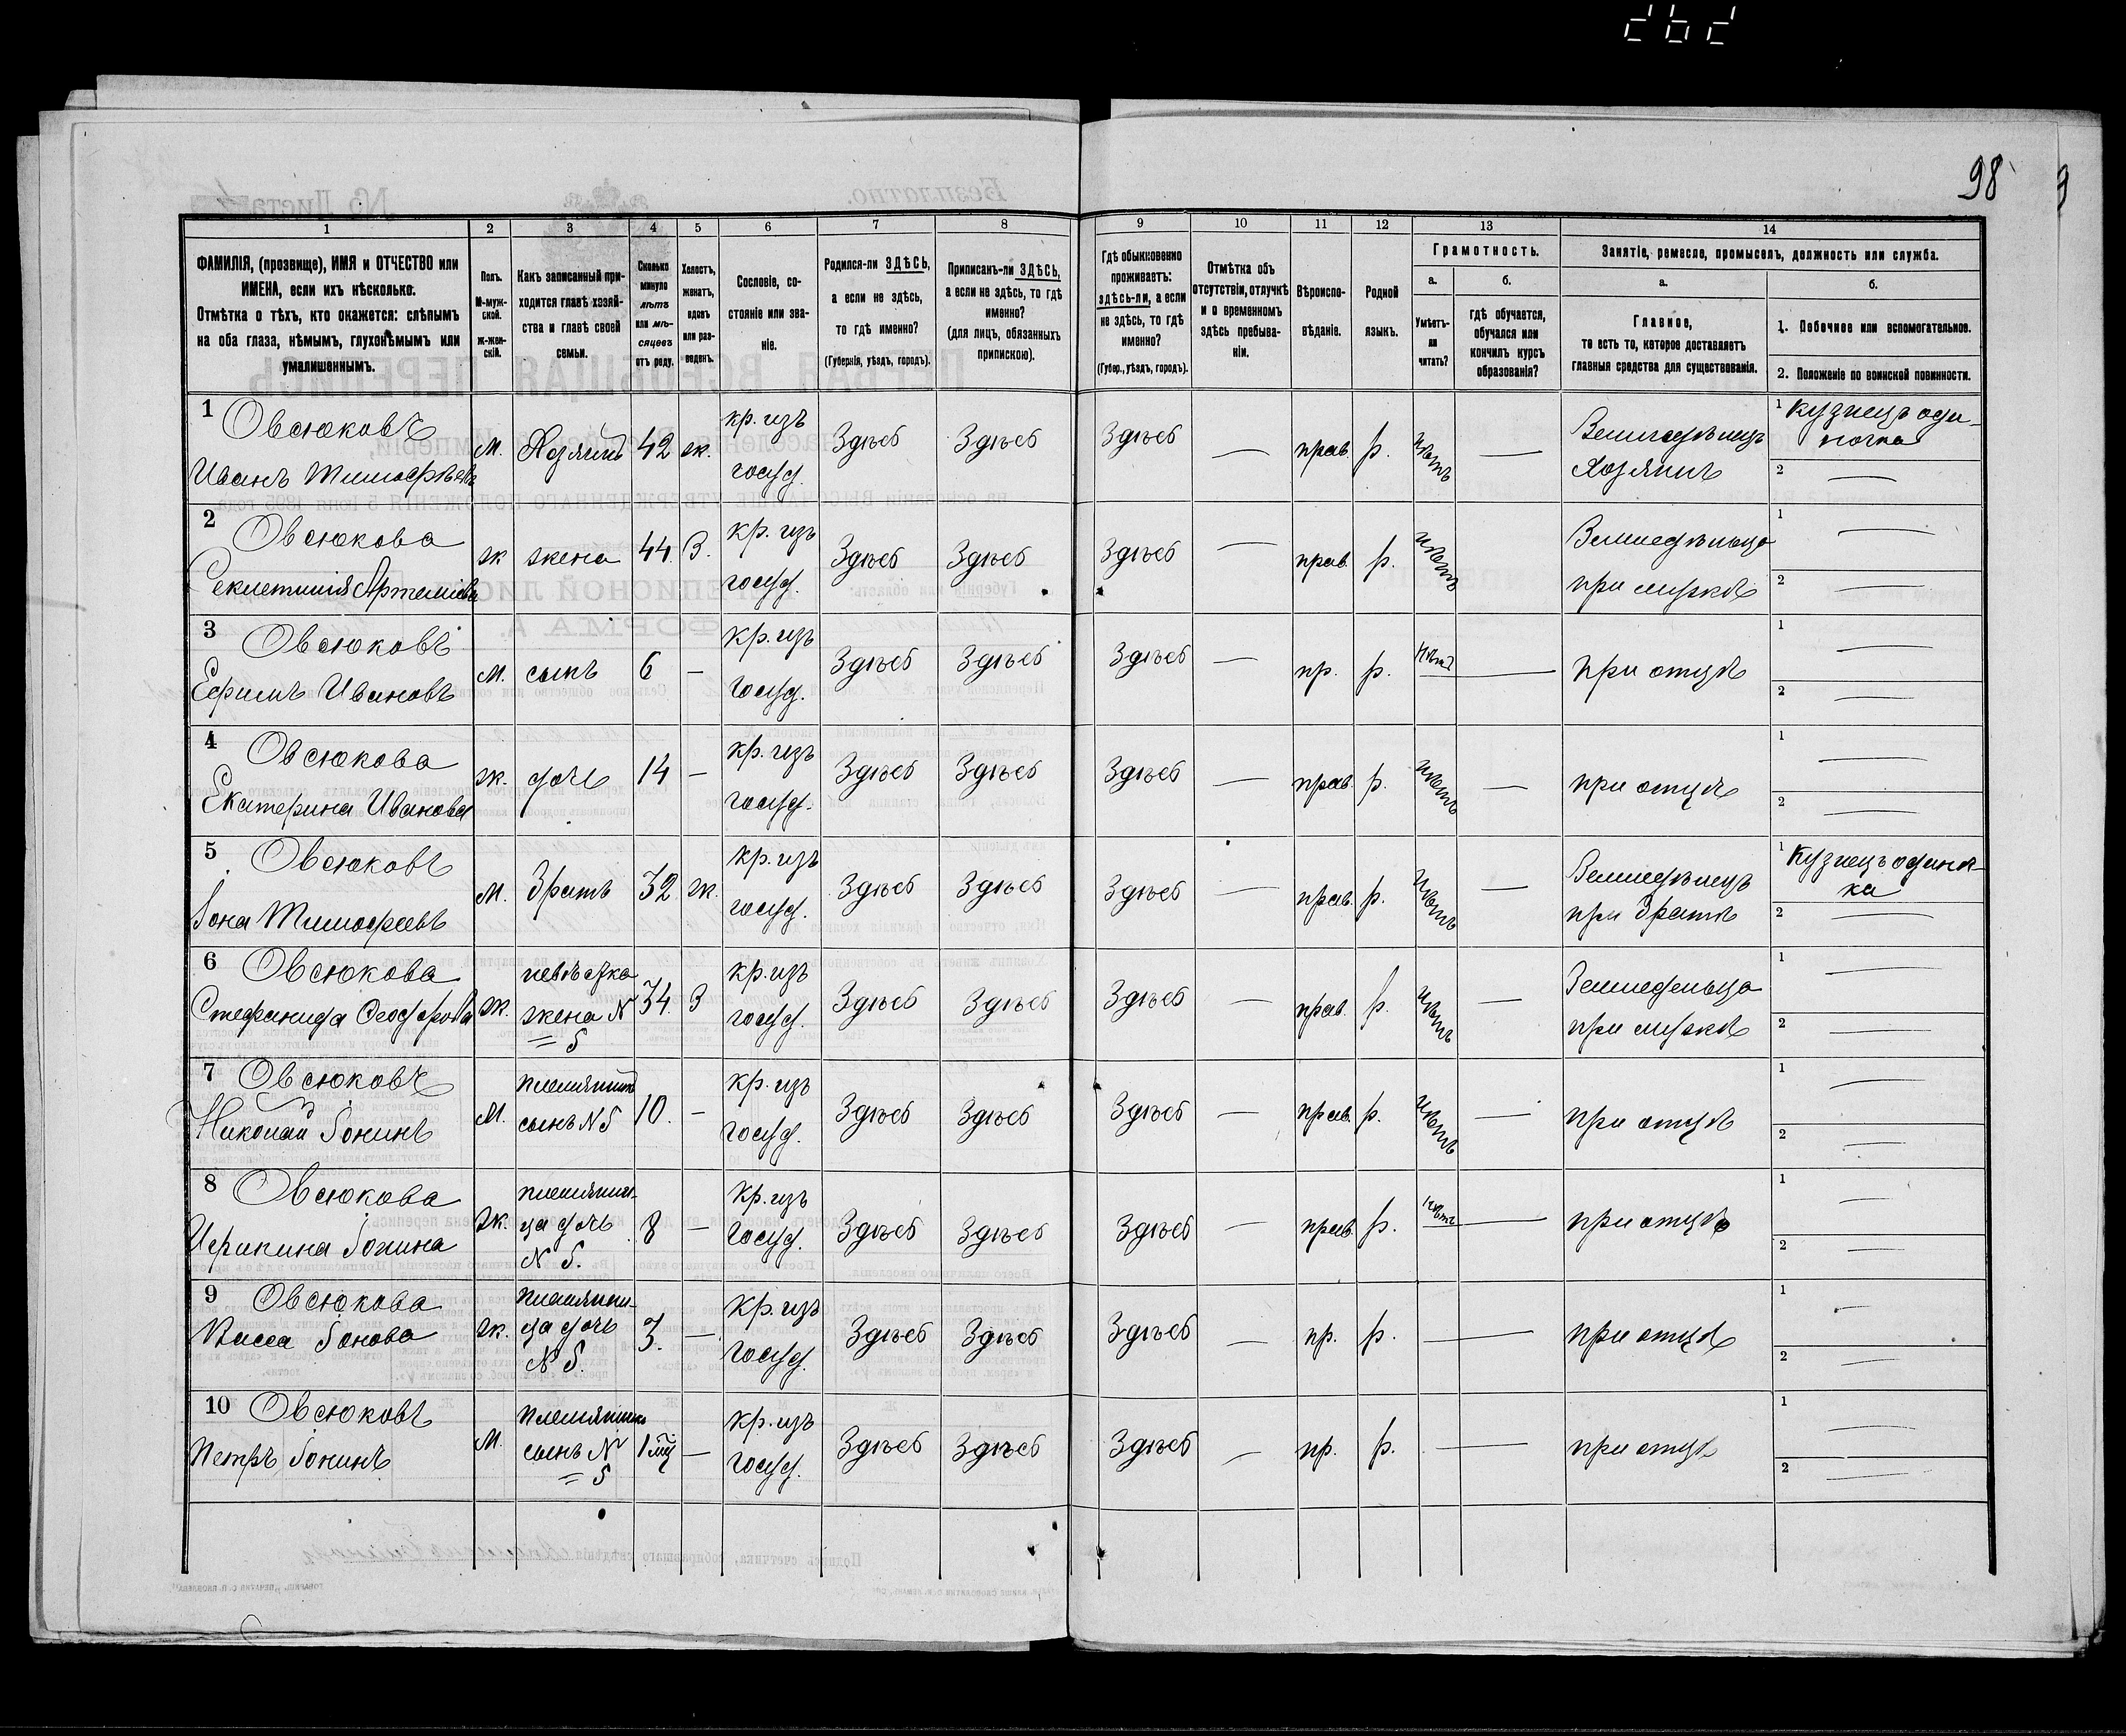 98
1 2 3 4 5 6 7 8 9 10 11 12 13 14
ФАМИЛІЯ, (прозвище), ИМЯ и ОТЧЕСТВО или
ИМЕНА, если ихъ нѣсколько.
Отмѣтка о тѣхъ, кто окажется: слѣпымъ
на оба глаза, нѣмымъ, глухонѣмымъ или
умалишеннымъ.
Полъ.
М-муж-
ской.
ж-жен-
скій.
Какъ записанный при-
ходится главѣ хозяй-
ства и главѣ своей
семьи.
Сколько
минуло
лѣтъ
или мѣ-
сяцевъ
отъ роду.
Холостъ,
женатъ,
вдовъ
или раз-
веденъ.
Сословіе, со-
стояніе или зва-
ніе.
Родился-ли ЗДѢСЬ,
а если не здѣсь,
то гдѣ именно?
(Губернія, уѣздъ, городъ).
Приписанъ-ли ЗДѢСЬ,
а если не здѣсь, то гдѣ
именно?
(для лицъ, обязанныхъ
припискою).
Гдѣ обыкновенно
проживаетъ:
здѣсь-ли, а если
не здѣсь, то гдѣ
именно?
(Губер., уѣздъ, городъ).
Отмѣтка объ
отсутствіи, отлучкѣ
и о временномъ
здѣсь пребыва-
ніи.
Вѣроиспо-
вѣданіе.
Родной
языкъ.
Грамотность.
а.
Умѣетъ-
ли
читать?
б.
гдѣ обучается,
обучался или
кончилъ курсъ
образованія?
Занятіе, ремесло, промыселъ, должность или служба.
а.
Главное,
то есть то, которое доставляетъ
главныя средства для существованія.
б.
1. Побочное или вспомогательное.
2. Положеніе по воинской повинности.
1 Овсюковъ
Иванъ Тимофѣевъ
м. Хозяинъ 42 ж. кр. изъ
госуд. Здѣсь Здѣсь Здѣсь — прав. р. нѣтъ —
Земледѣлецъ
Хозяинъ
1 Кузнецъ оди-
ночка
2 —
2 Овсюкова
Секлетинія Артеміева
ж жена 44 З. кр. изъ
госуд. Здѣсь Здѣсь Здѣсь — прав. р. нѣтъ
Земледѣлица
при мужѣ
1 —
2 —
3 Овсюковъ
Ефимъ Ивановъ
м. сынъ 6 — кр. изъ
госуд. Здѣсь Здѣсь Здѣсь — пр. р. нѣтъ —
при отцѣ
1 —
2 —
4 Овсюкова
Екатерина Иванова
ж. дочь 14 — кр. изъ
госуд. Здѣсь Здѣсь Здѣсь — прав. р. нѣтъ —
при отцѣ
1 —
2 —
5 Овсюковъ
Іона Тимофеевъ
м. братъ 32 ж. кр. изъ
госуд. Здѣсь Здѣсь Здѣсь — прав. р. нѣтъ —
Земледѣлецъ
при братѣ
1 Кузнецъ одиноч-
ка
2 —
6 Овсюкова
Стефанида Феофрова
ж. невѣстка
жена N
= 5
34. З кр. изъ
госуд. Здѣсь Здѣсь Здѣсь — прав. р. нѣтъ —
Земледельца
при мужѣ
1 —
2 —
7 Овсюковъ
Николай Іонинъ
м. племянникъ
сынъ N 5
10. — кр. изъ
госуд. Здѣсь Здѣсь Здѣсь — прав. р. нѣтъ —
при отцѣ
1 —
2 —
8 Овсюкова
Іонина
ж. племянни-
ца дочь
N 5.
8 — кр. изъ
госуд. Здѣсь Здѣсь Здѣсь — прав. р. нѣтъ —
при отцѣ
1 —
2 —
9 Овсюкова
Васса Іонова
ж. племянни-
ца дочь
N 5.
3. — кр. изъ
госуд. Здѣсь Здѣсь Здѣсь — пр. р. —
при отцѣ
1 —
2 —
10 Овсюковъ
Петръ Іонинъ
м. племянникъ
сынъ N
= 5
1 мц — кр. изъ
госуд. Здѣсь Здѣсь Здѣсь — пр. р. —
при отцѣ
1 —
2 —